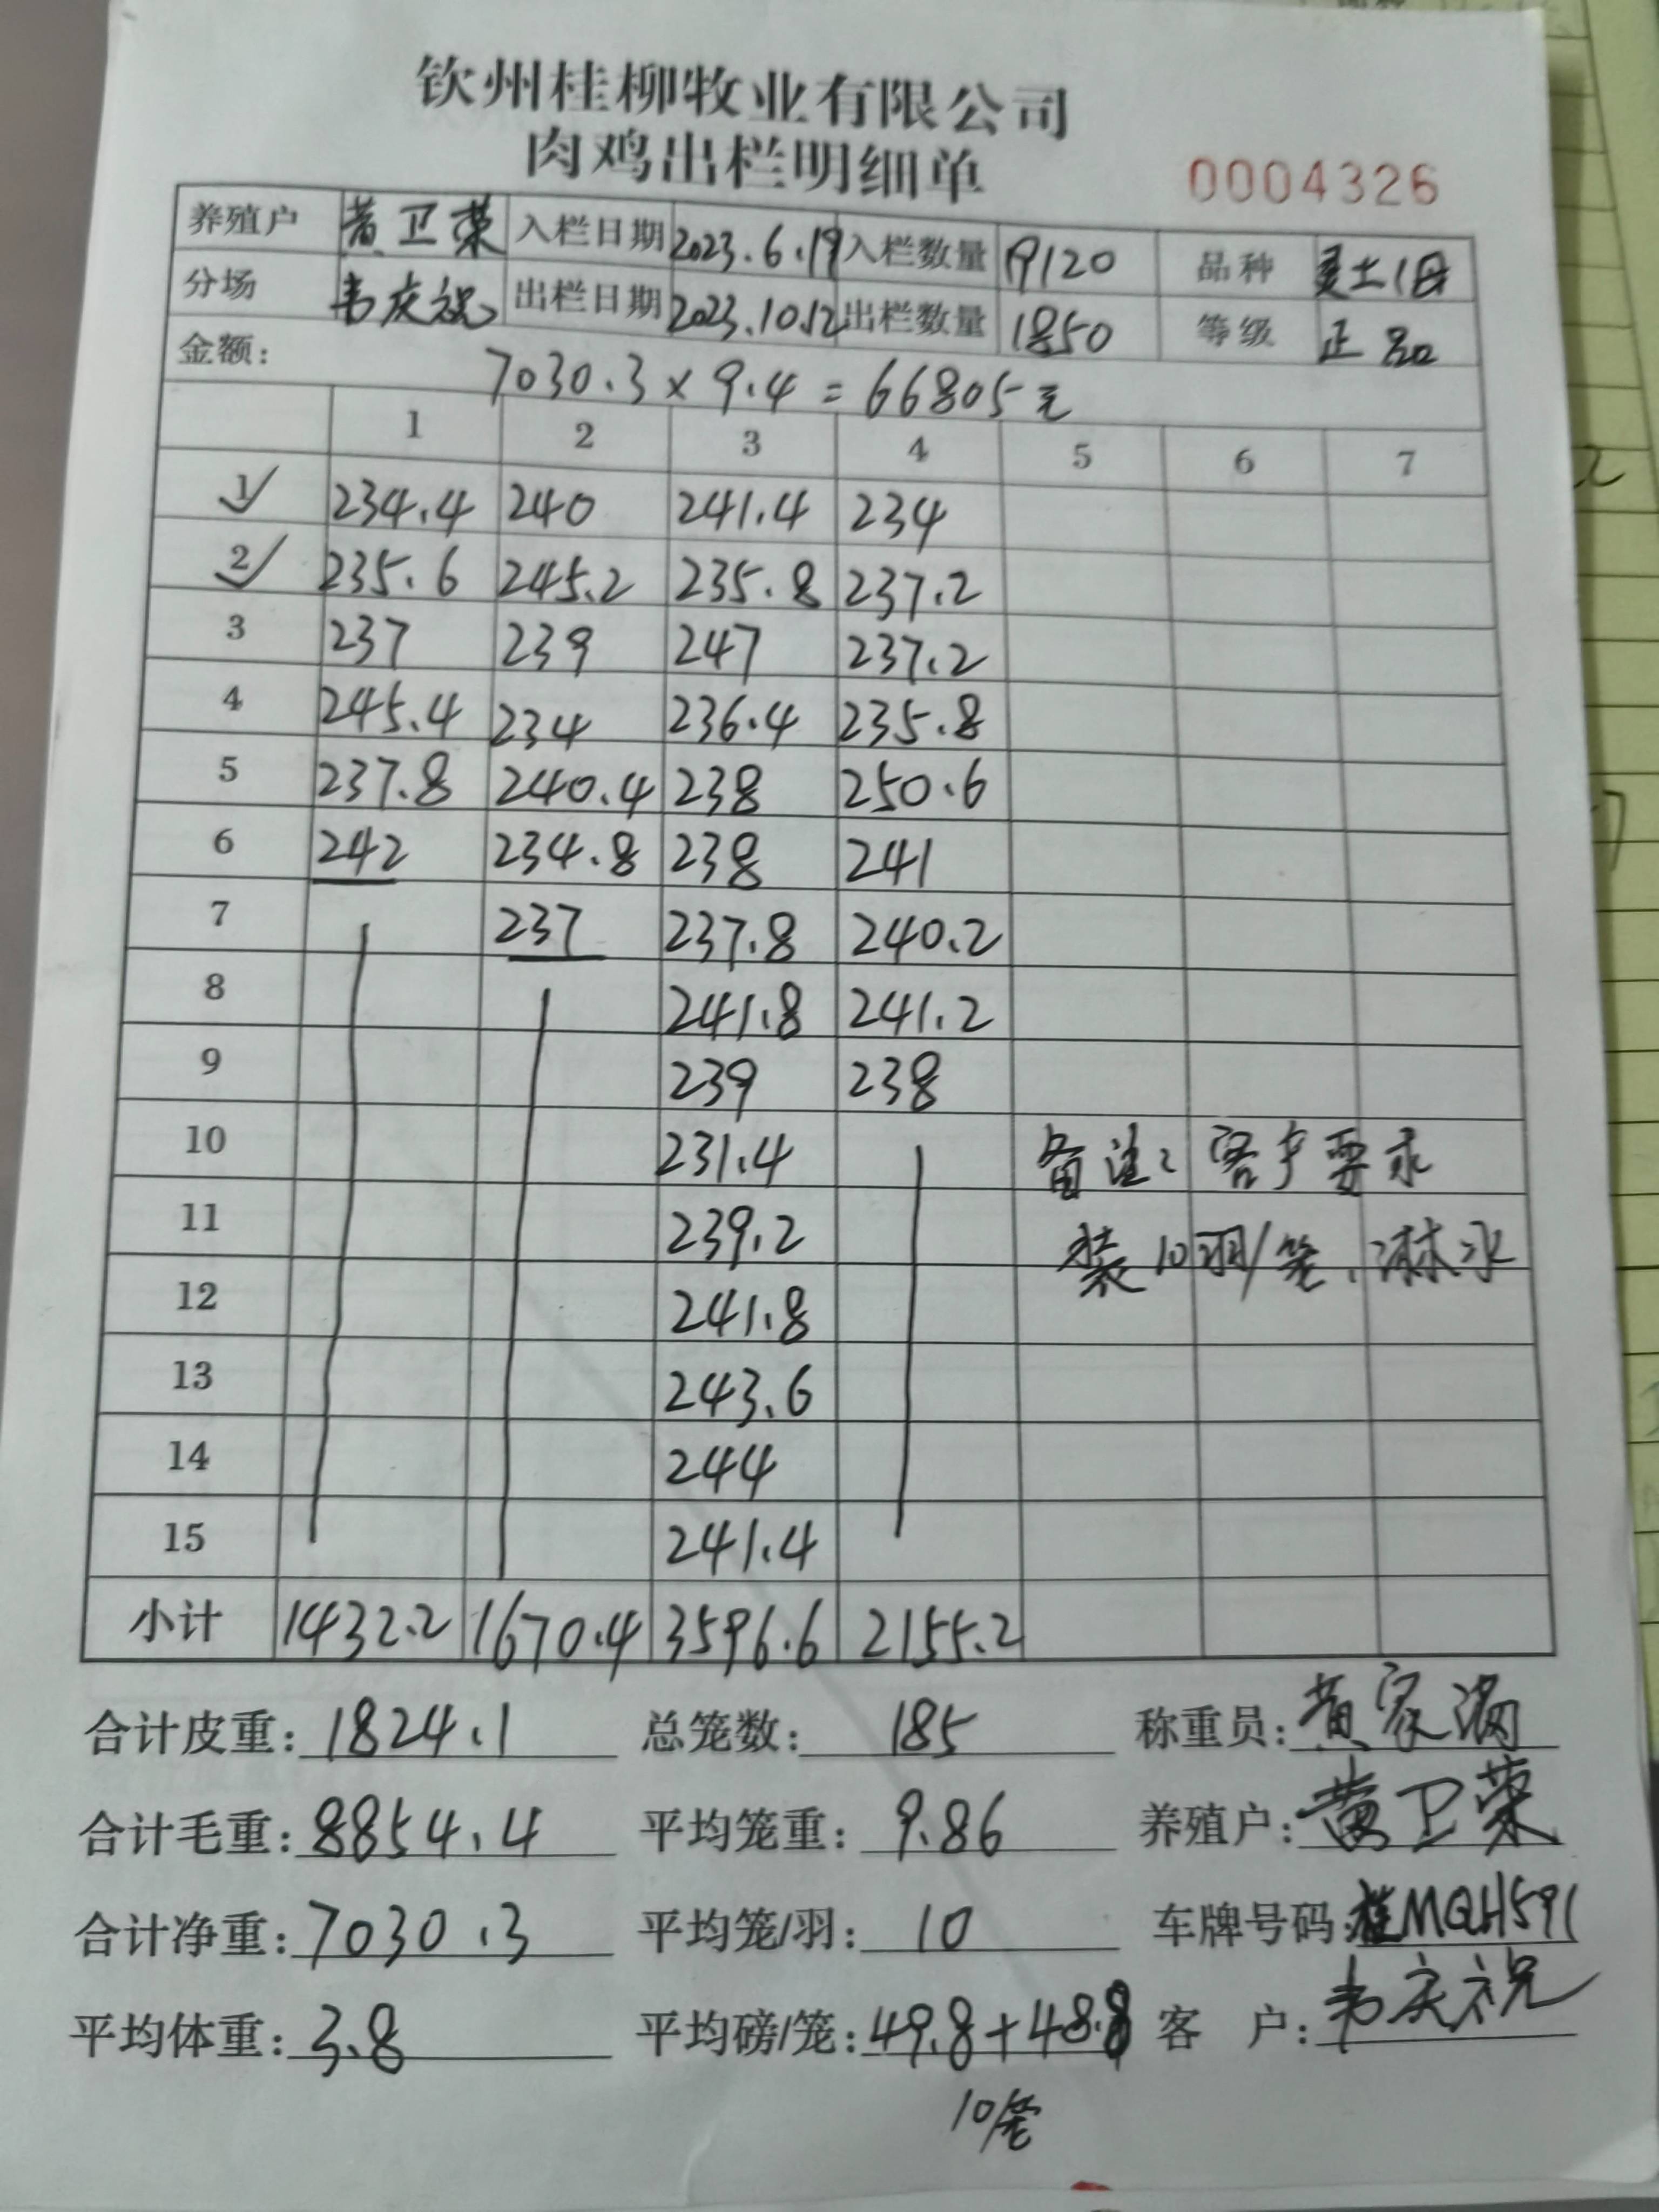 钦州桂柳牧业有限公司
肉鸡出栏明细单
0004326
养殖户 黄卫荣 入栏日期 2023.6.19 入栏数量 19120 品种 土1母
分场 韦庆祝 出栏日期 2023.10.12 出栏数量 1850 等级 正品
金额: 7030.3×9.4=66805元
1 2 3 4 5 6 7
1 234.4 240 241.4 234
2 235.6 245.2 235.8 237.2
3 237 239 247 237.2
4 245.4 234 236.4 235.8
5 237.8 240.4 238 250.6
6 242 234.8 238 241
7 237 237.8 240.2
8 241.8 241.2
9 239 238
10 231.4 备注: 客户要求
11 239.2 装10羽/笼、淋水
12 241.8
13 243.6
14 244
15 241.4
小计 1432.2 1670.4 3596.6 2155.2
合计皮重: 1824.1 总笼数: 185 称重员: 黄家
合计毛重: 8854.4 平均笼重: 9.86 养殖户: 黄卫荣
合计净重: 7030.3 平均笼/羽: 10 车牌号码: 桂MQH591
平均体重: 3.8 平均磅/笼: 49.8+48.8 客 户: 韦庆祝
10/笼